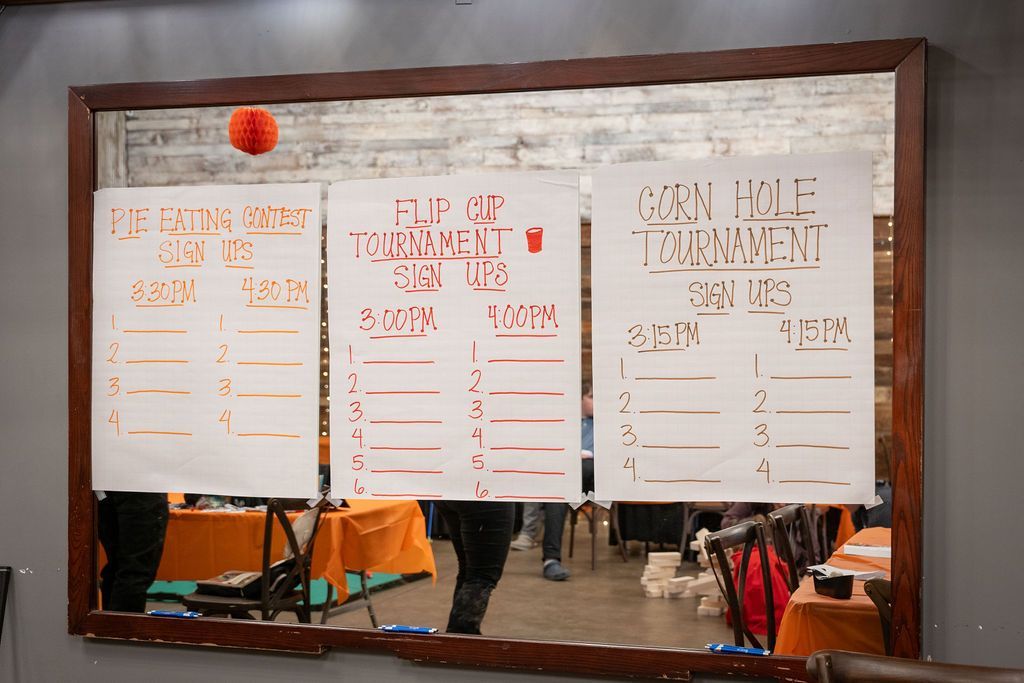 PIE EATING CONTEST
SIGN UPS
3:30PM 4:30PM
1. 1.
2. 2.
3. 3.
4. 4.
FLIP CUP
TOURNAMENT
SIGN UPS
3:00PM 4:00PM
1. 1.
2. 2.
3. 3.
4. 4.
5. 5.
6. 6.
CORN HOLE
TOURNAMENT
SIGN UPS
3:15PM 4:15PM
1. 1.
2. 2.
3. 3.
4. 4.